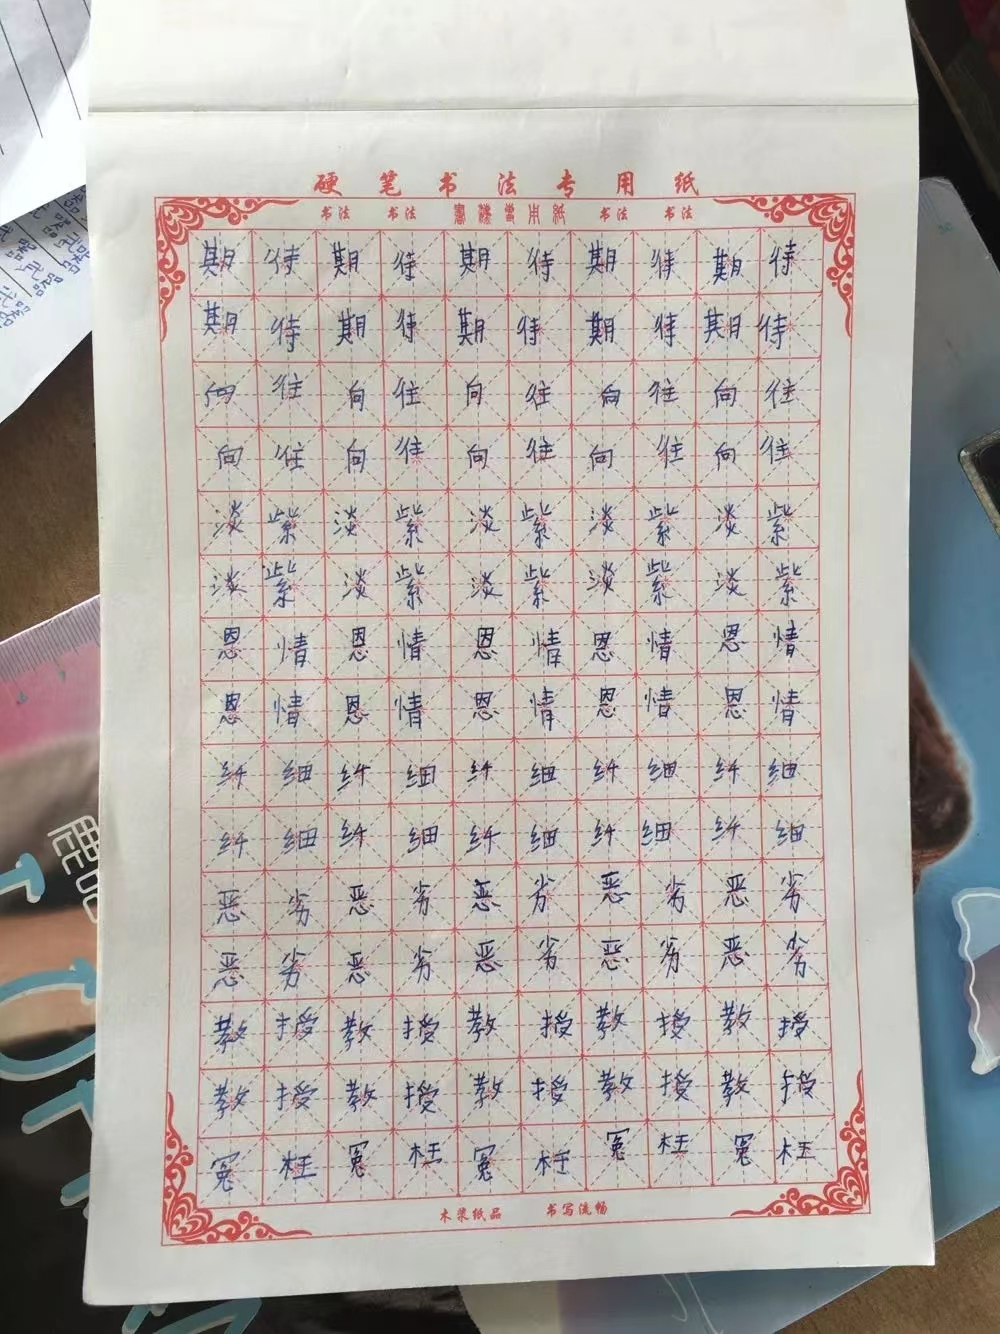 硬笔书法专用纸
书法 书法 書法專用紙 书法 书法
期待期待期待期待期待
期待期待期待期待期待
向往向往向往向往向往
向往向往向往向往向往
淡紫淡紫淡紫淡紫淡紫
淡紫淡紫淡紫淡紫淡紫
恩情恩情恩情恩情恩情
恩情恩情恩情恩情恩情
纤细纤细纤细纤细纤细
纤细纤细纤细纤细纤细
恶劣恶劣恶劣恶劣恶劣
恶劣恶劣恶劣恶劣恶劣
教授教授教授教授教授
教授教授教授教授教授
冤枉冤枉冤枉冤枉冤枉
木浆纸品 书写流畅